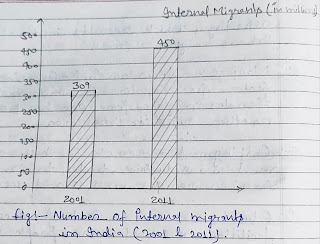 Internal Migrants (in millions)
500
450
400
350
300
250
200
150
100
50
0
309
450
2001
2011
fig:- Number of Internal migrants
in India (2001 & 2011).